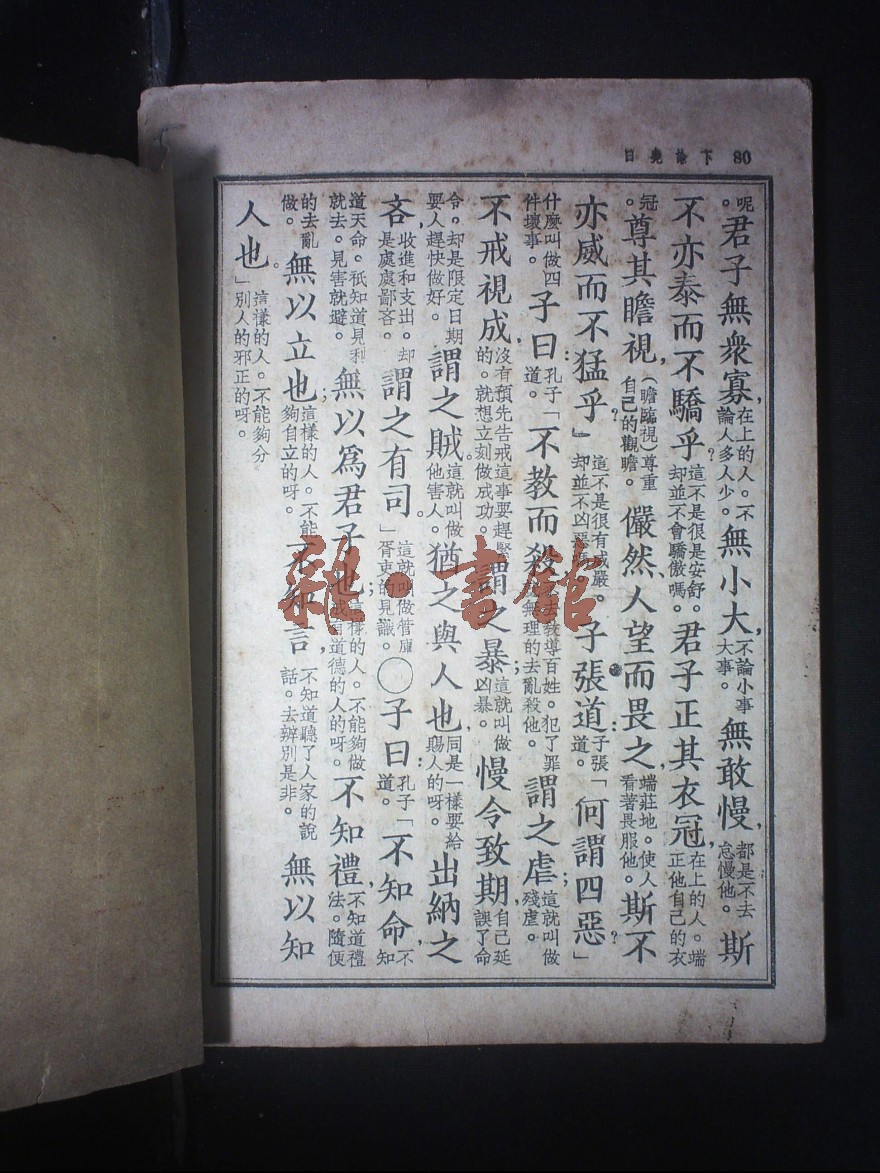 80 下論堯曰
呢。君子無衆寡，在上的人。不論人多人少。無小大，不論小事大事。無敢慢，都是不去怠慢他。斯
不亦泰而不驕乎？這不是很是安舒。却並不會驕傲嗎。君子正其衣冠，在上的人。端正他自己的衣
冠。尊其瞻視，（瞻臨視）尊重自己的觀瞻。儼然、人望而畏之，端莊地。使人看著畏服他。斯不
亦威而不猛乎？」這不是很有威嚴。却並不凶惡嗎。子張道：子張道。「何謂四惡？」
什麼叫做四件壞事。子曰：孔子道。「不教而殺不去教導百姓。犯了罪無理的去亂殺他。謂之虐；這就叫做殘虐。
不戒視成，沒有預先告戒這事要趕緊的。就想立刻做成功。謂之暴；這就叫做凶暴。慢令致期，自己延誤了命
令。却是限定日期要人趕快做好。謂之賊。這就叫做他害人。猶之與人也，同是一樣要給賜人的呀。出納之
吝，收進和支出。却是處處鄙吝。謂之有司」這就叫做管庫胥吏的見識。○子曰：孔子道。「不知命，不知
道天命。祇知道見利就去。見害就避。無以爲君子也；這樣的人。不能夠做成有道德的人的呀。不知禮，不知道禮法。隨便
的去亂做。無以立也；這樣的人。不能夠自立的呀。不知言，不知道聽了人家的說話。去辨別是非。無以知
人也。」這樣的人。不能夠分別人的邪正的呀。
雜·書館